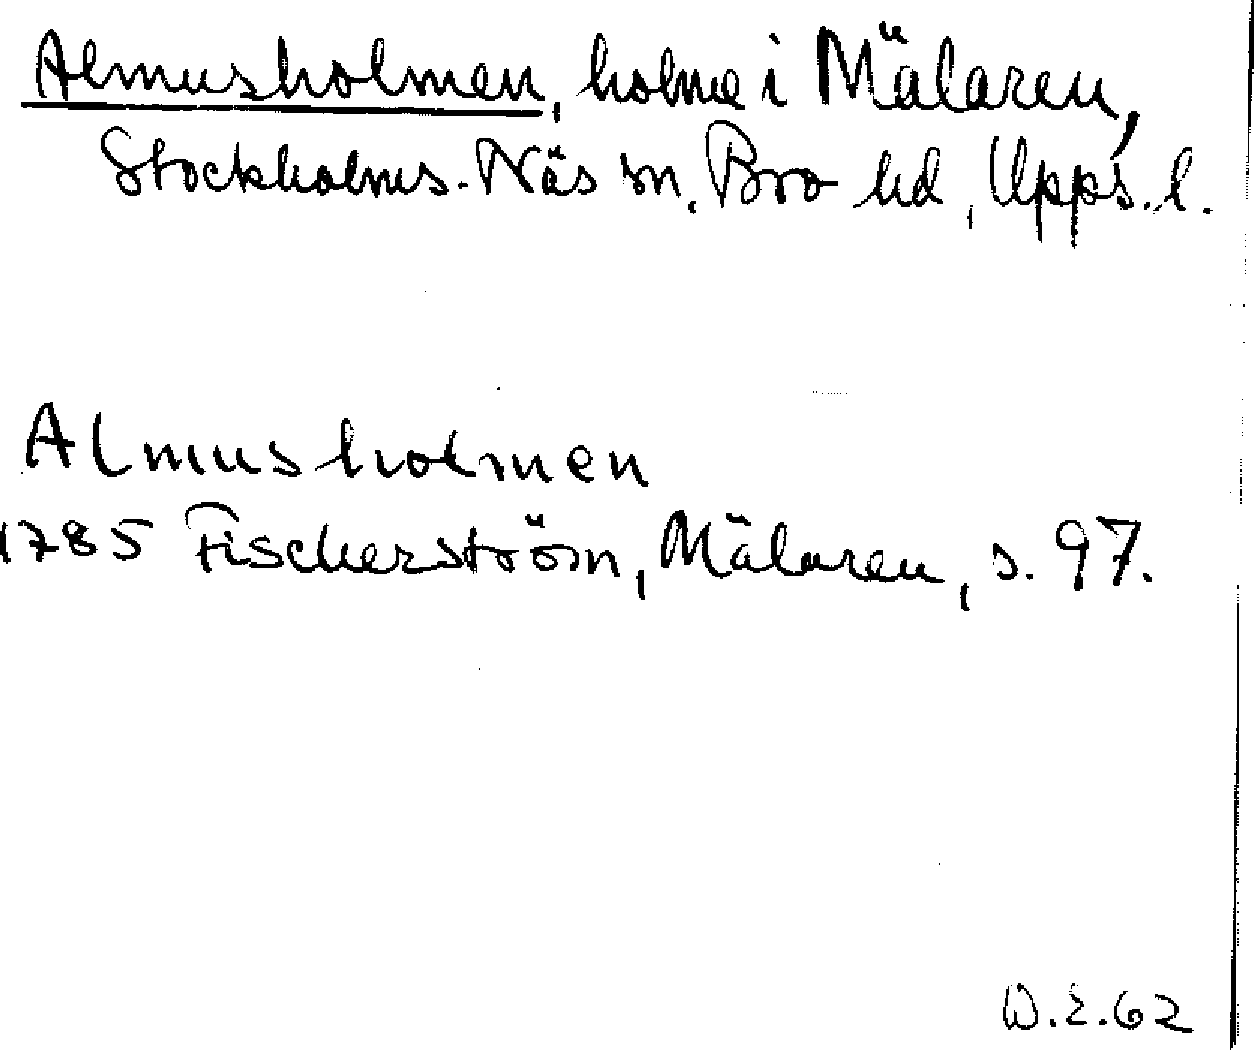 Almusholmen, holme i Mälaren,
Stockholms-Näs sn, Bro hd, Upps. l.
Almusholmen
1785 Fischerström, Mälaren, s. 97.
D.E.62